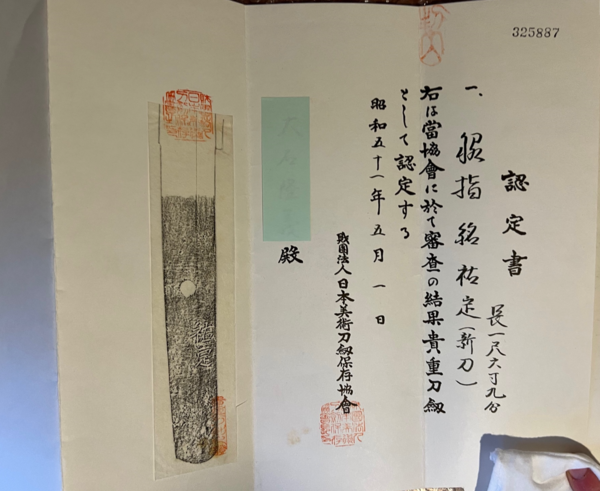 325887
認定書
一、脇指 銘 祐定(新刀)
長一尺六寸九分
右は當協會に於て審査の結果貴重刀劔
として認定する
昭和五十一年五月一日
財團法人日本美術刀劔保存協會
殿
祐定